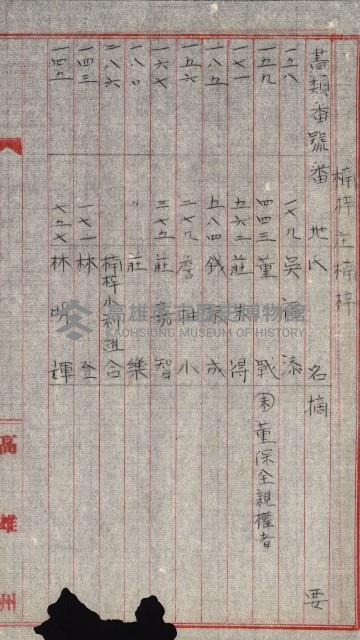 楠梓庄楠梓
書類番號 番地 氏名 摘要
一五八 一七九 吳 添
一五九 四四三 董 戰 ㊍董保全親權者
一七一 五六三 莊 得
一八五 五八四 錢 成
一五六 二七九 詹 小
一六七 三七五 莊 智
一八〇 〃 莊 樂
二八六 楠梓小 組合
一四三 一七一 林 登
一四五 七五七 林 明 輝
高雄州
高雄市立歷史博物館
KAOHSIUNG MUSEUM OF HISTORY